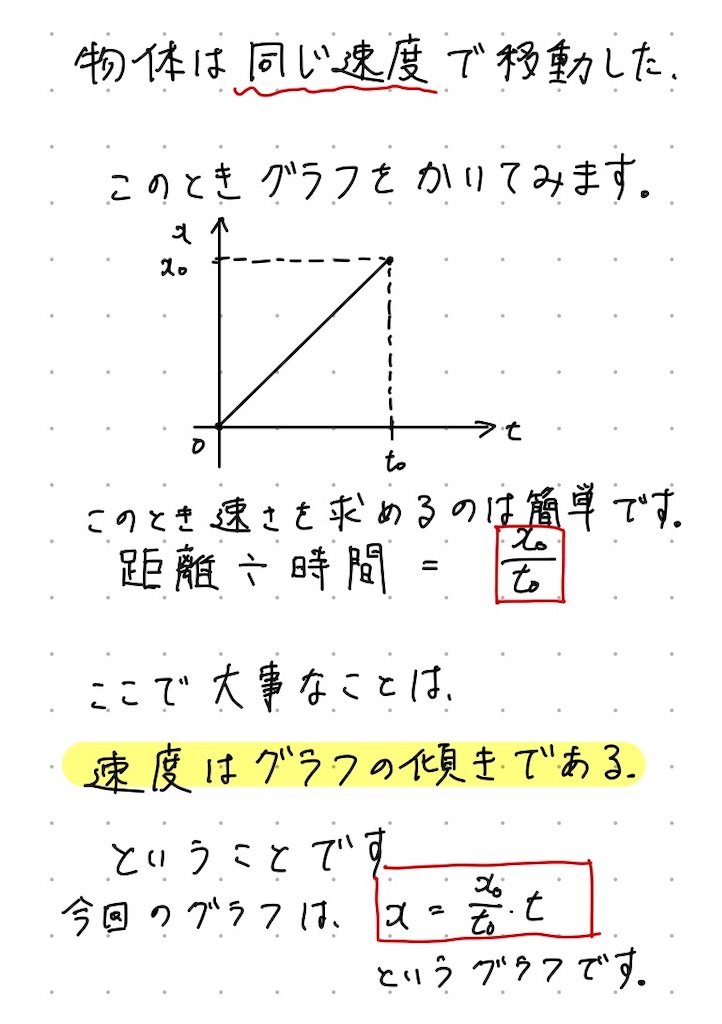 物体は同じ速度で移動した.
このときグラフをかいてみます。
x
x₀
0
t
t₀
このとき速さを求めるのは簡単です。
距離÷時間 = x₀/t₀
ここで大事なことは、
速度はグラフの傾きである.
ということです
今回のグラフは、 x = x₀/t₀ · t
というグラフです。